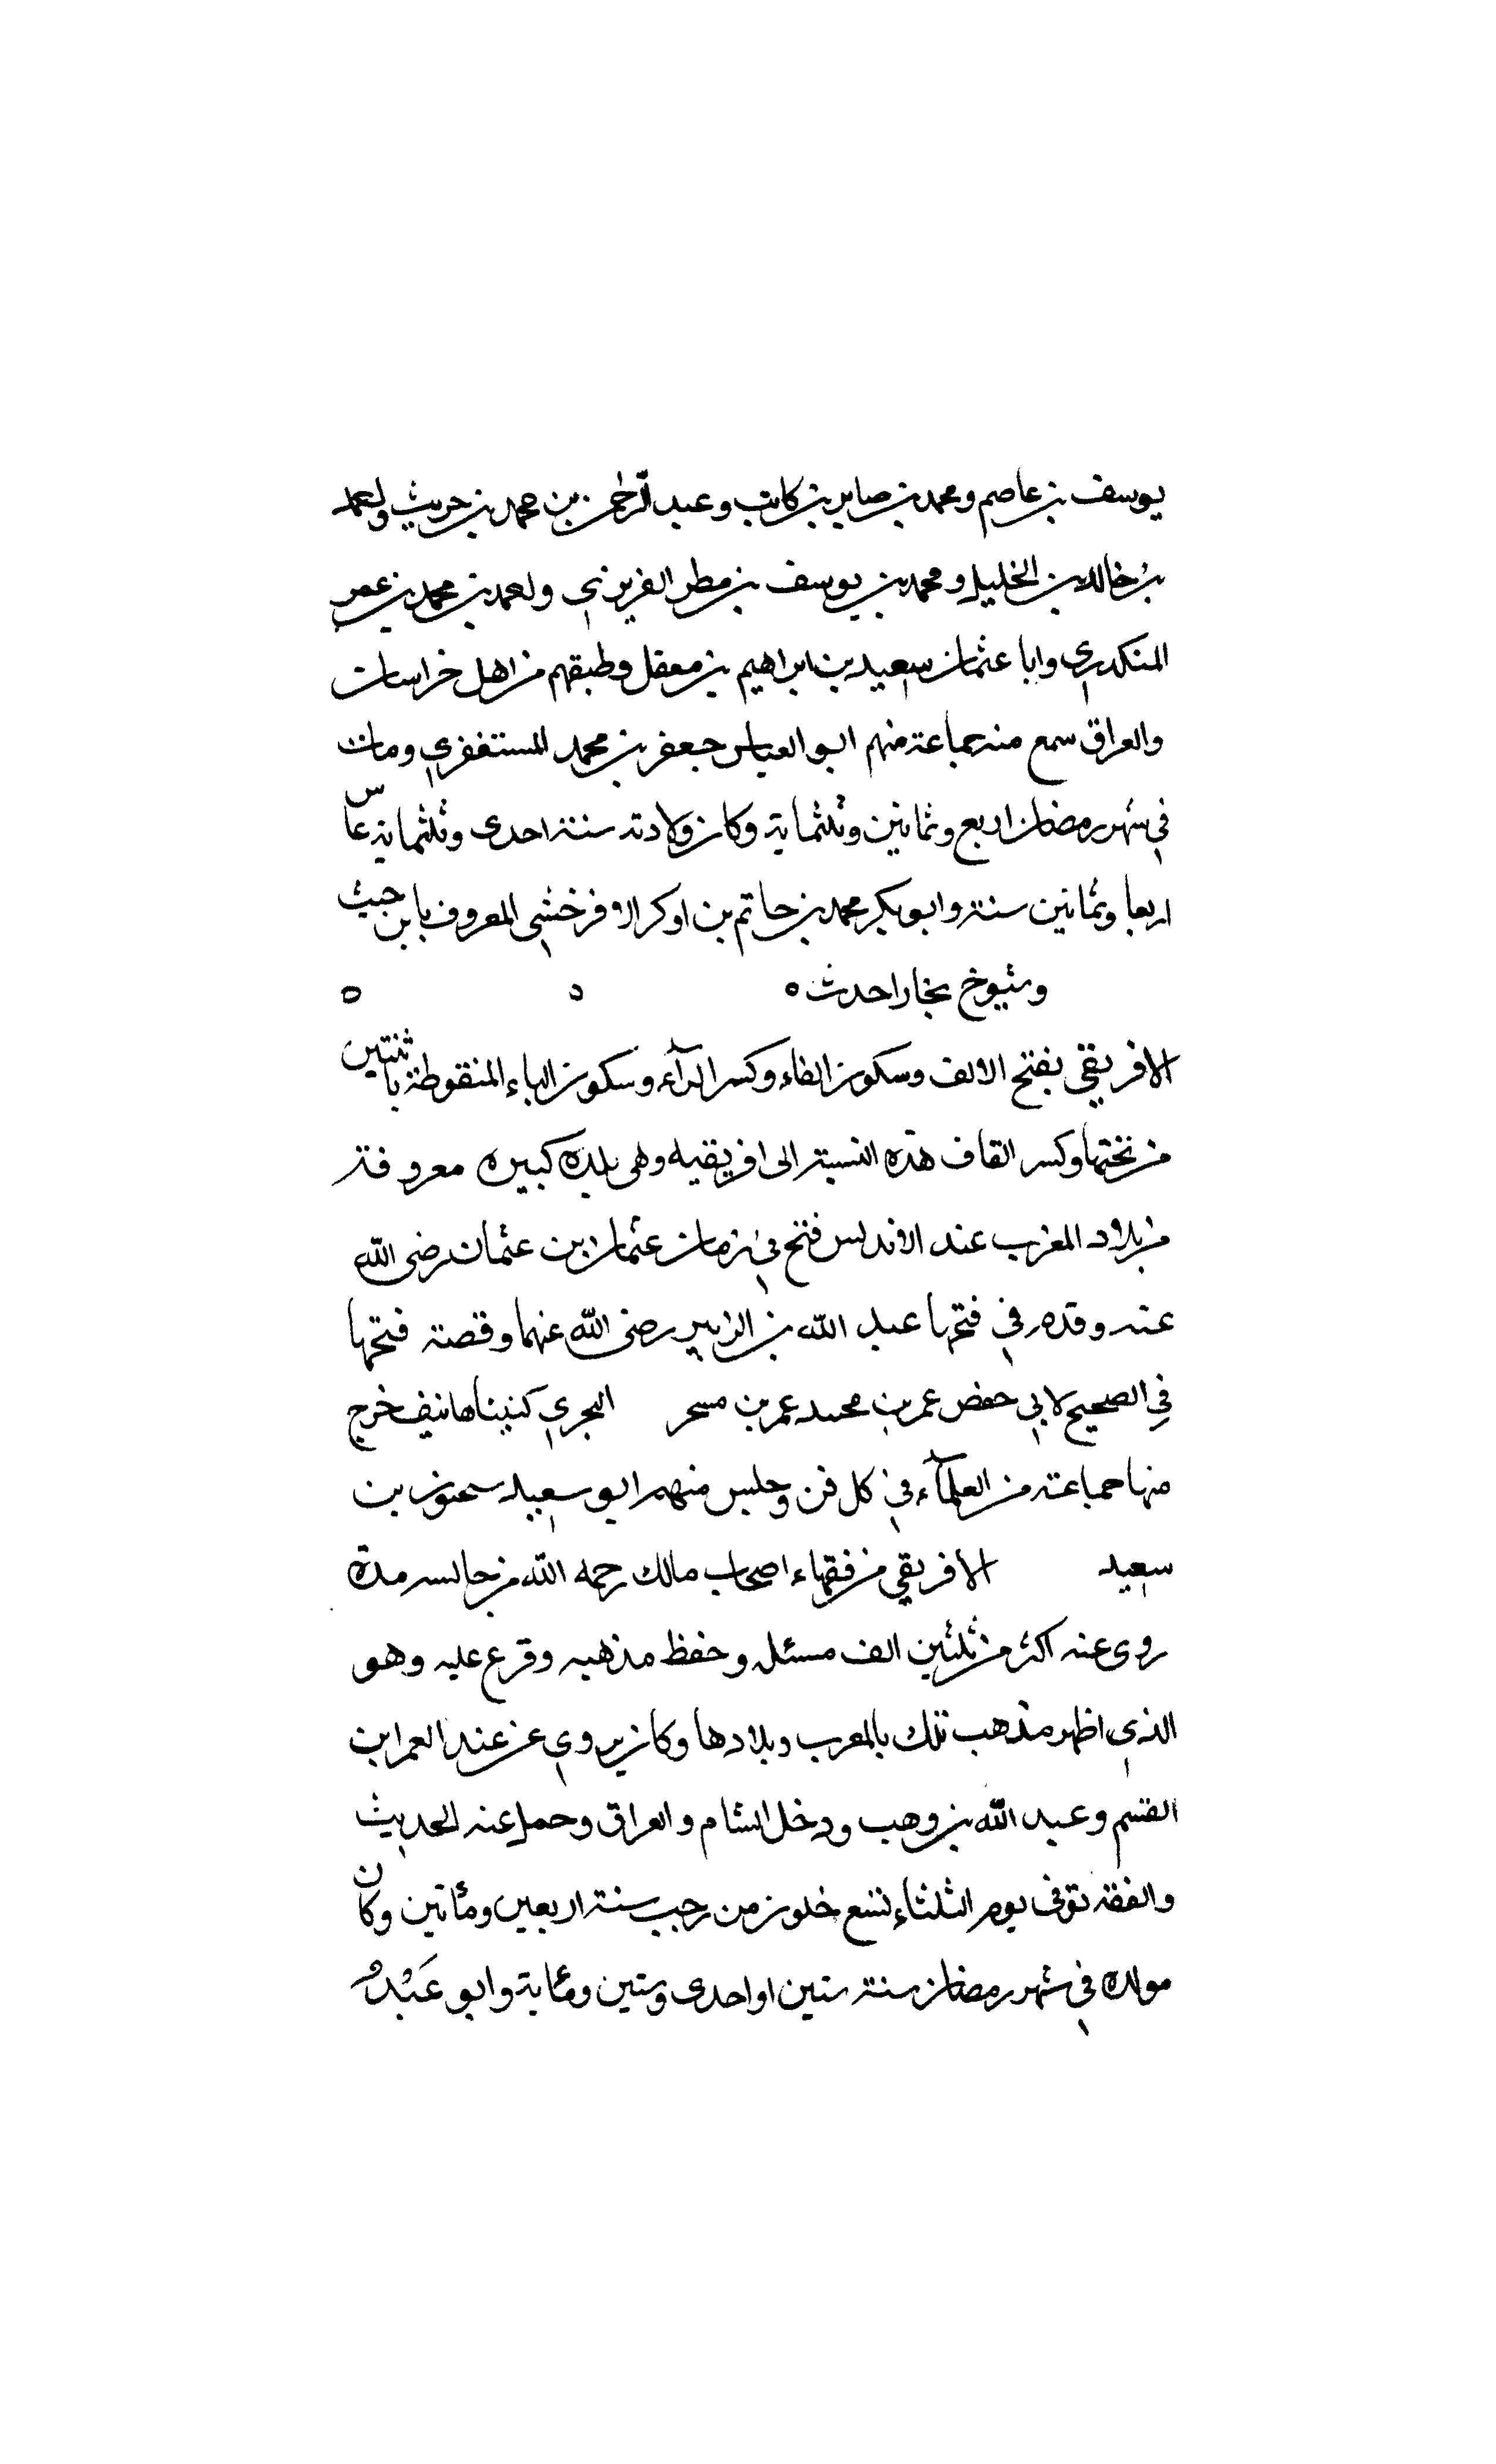 يوسف بن عاصم ومحمد بن صابر بن كاتب وعبد الرحمن بن محمد بن حريث واحمد
بن خالد بن الخليل ومحمد بن يوسف بن مطر الفربري واحمد بن محمد بن عمر
المنكدري وابا عثمان سعيد بن ابراهيم بن معقل وطبقهم من اهل خراسان
والعراق سمع منه جماعة منهم ابو العباس جعفر بن محمد المستغفري ومات
في شهر رمضان اربع وثمانين وثلثماية وكان ولادته سنة احدى وثلثماية عاس
اربعا وثمانين سنة وابو بكر محمد بن حاتم بن اوكر الافرخشي المعروف بابن
وشيوخ بخارا حدث ه ه ه
الافريقي بفتح الالف وسكون الفاء وكسر الرآء وسكون الياء المنقوطة باثنتين
من تحتها وكسر القاف هذه النسبة الى افريقيه وهي بلدة كبيره معروفة
من بلاد المغرب عند الاندلس فتح في زمان عثمان بن عثمان رضى الله
عنه وقدم في فتحها عبد الله بن الزبير رضى الله عنهما وقصة فتحها
في الصحيح لابي حفص عمر بن محمد عمر بن البجري خرج
منها جماعة من العلمآء في كل فن وجلس منهم ابو سعيد سحنون بن
سعيد الافريقي من فقهاء اصحاب مالك رحمه الله من جالسه مدة
روى عنه اكثر من ثلثين الف مسئله وحفظ مذهبه وفرع عليه وهو
الذي اظهر مذهب تلك بالمغرب وبلادها وكان يروي عن
القسم وعبد الله بن وهب ودخل الشام والعراق وحمل عنه الحديث
والفقه توفى يوم الثلثاء لتسع خلون من رجب سنة اربعين ومأتين وكان
مولده في شهر رمضان سنة ستين او احدى وستين ومأية وابو عبد